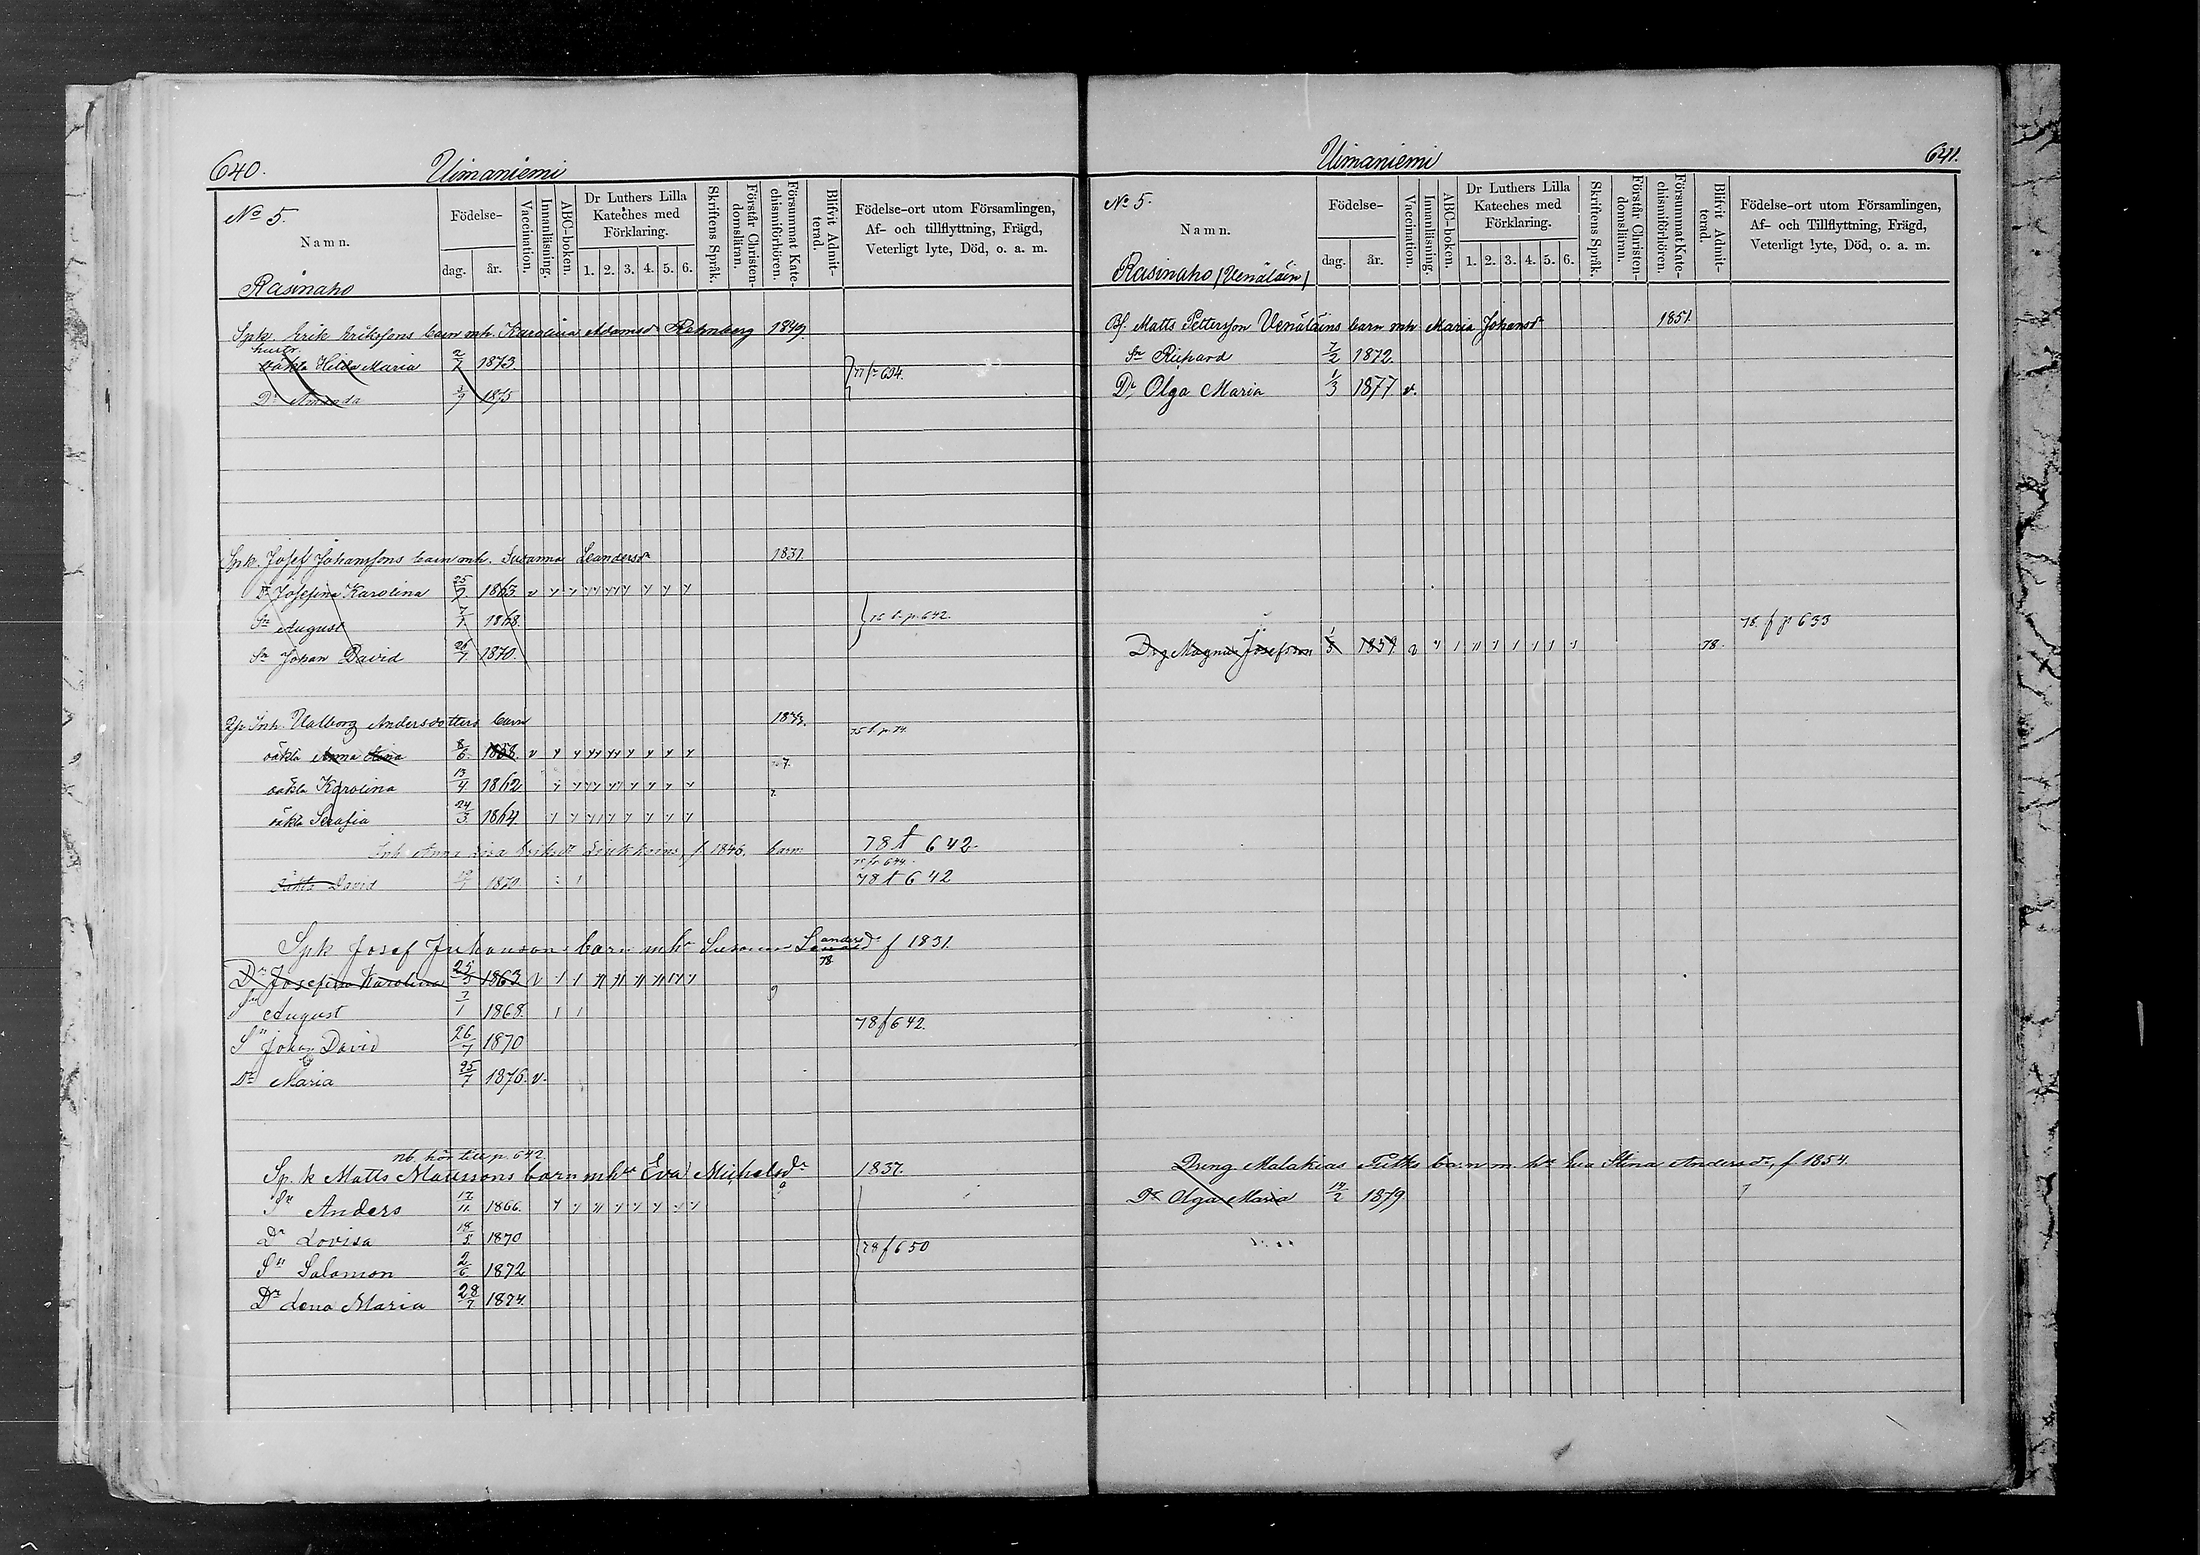 640.
Uimaniemi
No 5.
Namn.
Födelse-
dag.
år.
Vaccination.
Innanläsning.
ABC-boken.
Dr Luthers Lilla
Kateches med
Förklaring.
1. 2. 3. 4. 5. 6.
Skriftens Språk.
Förstår Christen-
domsläran.
Försummat Kate-
chismiförhören.
Blifvit Admit-
terad.
Födelse-ort utom Församlingen,
Af- och tillflyttning, Frägd,
Veterligt lyte, Död, o. a. m.
Rasinaho
Spk. Erik Eriksons barn mh. Karolina Adamsdr 1849.
oäkta Hilda Maria 2/7 1873.
Dr Amanda 3/9 1875
Spk. Josef Johanssons barn mh. Susanna Leandersdr 1831
Dr Josefina Karolina 25/2 1863
Sn August 7/1 1868. 76 t. p. 642.
Sn Johan David 26/7 1870.
Inh. Valborg Andersdotters barn
oäkta Anna 8/6 1858. v
oäkta Karolina 13/4 1862
oäkta Serafia 24/3 1864
Inh Anna Lisa Eriksdr f 1846. barn 78 t 642.
oäkta David 1870 78 t 642
Spk Josef Juhanson barn mhu Susanna Leandersdr f 1831.
78
Dr Josefina Karolina 25/3 1863 v
Sn August 7/1 1868.
78 f 642.
Sn Johan David 26/7 1870
Dr Maria 25/7 1876. v.
nb. hör till p. 642
Sp. k Matts Matssons barn mhu Eva Michelsdr 1837.
Sn Anders 17/11 1866.
Dr Lovisa 18/5 1870
78 f 650
Sn Salomon 2/6 1872
Dr Lena Maria 28/7 1874.
Uimaniemi
641.
No 5.
Namn.
Födelse-
dag.
år.
Vaccination.
Innanläsning.
ABC-boken.
Dr Luthers Lilla
Kateches med
Förklaring.
1. 2. 3. 4. 5. 6.
Skriftens Språk.
Förstår Christen-
domsläran.
Försummat Kate-
chismiförhören.
Blifvit Admit-
terad.
Födelse-ort utom Församlingen,
Af- och Tillflyttning, Frägd,
Veterligt lyte, Död, o. a. m.
Rasinaho (Venäläin)
Bf. Matts Pettersson Venäläins barn mh Maria Johansdr 1851
Sn Richard 7/2 1872.
Dr Olga Maria 1/3 1877 v.
78. f p 633
Drg Magnus Josefsson 1/3 1859 v 78.
Dreng Malakias barn m. hu Eva Stina Andersdr, f 1854.
Dr Olga Maria 19/2 1879